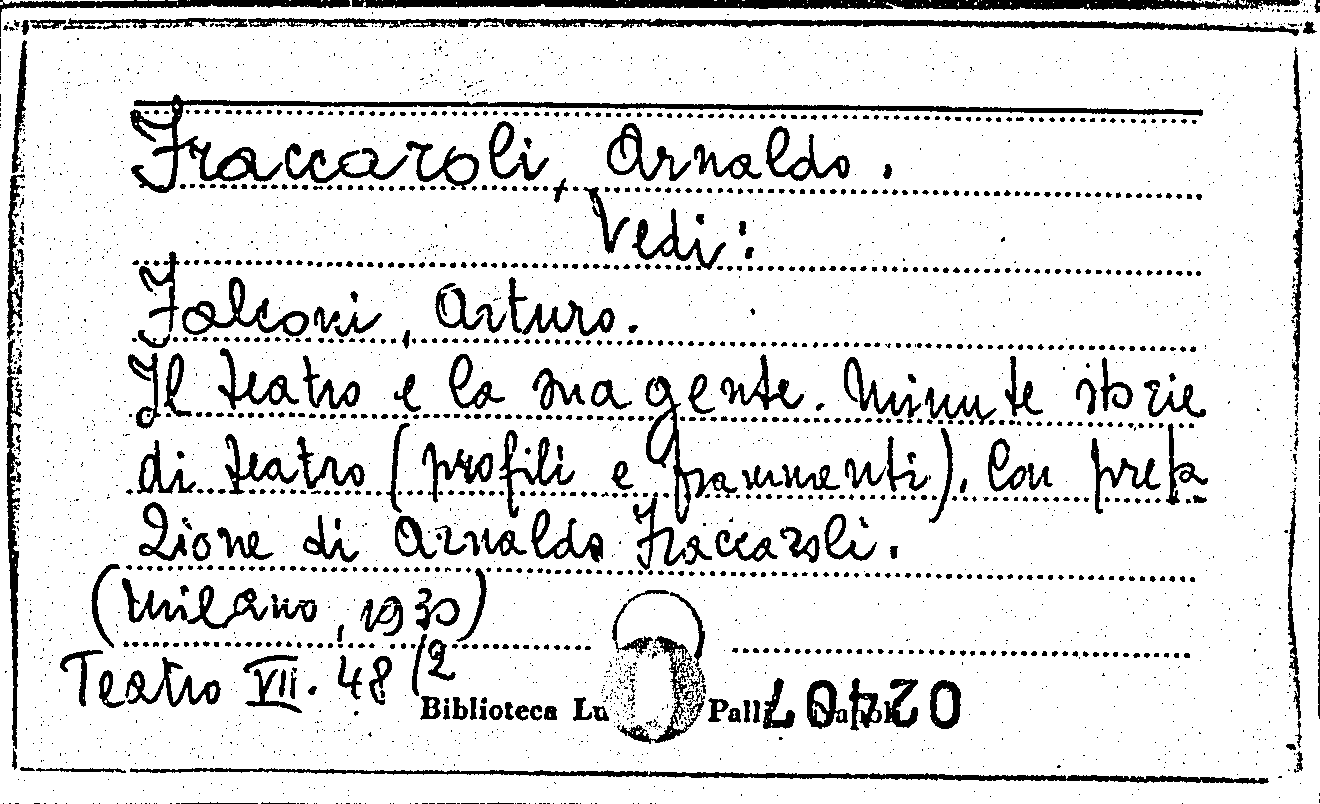 Fraccaroli, Arnaldo.
Vedi:
Falconi, Arturo.
Il teatro e la sua gente. Minute storie
di teatro (profili e frammenti). Con prefa
zione di Arnaldo Fraccaroli.
(Milano, 1930)
Teatro VII. 48/2
Biblioteca Lu Palli
02407